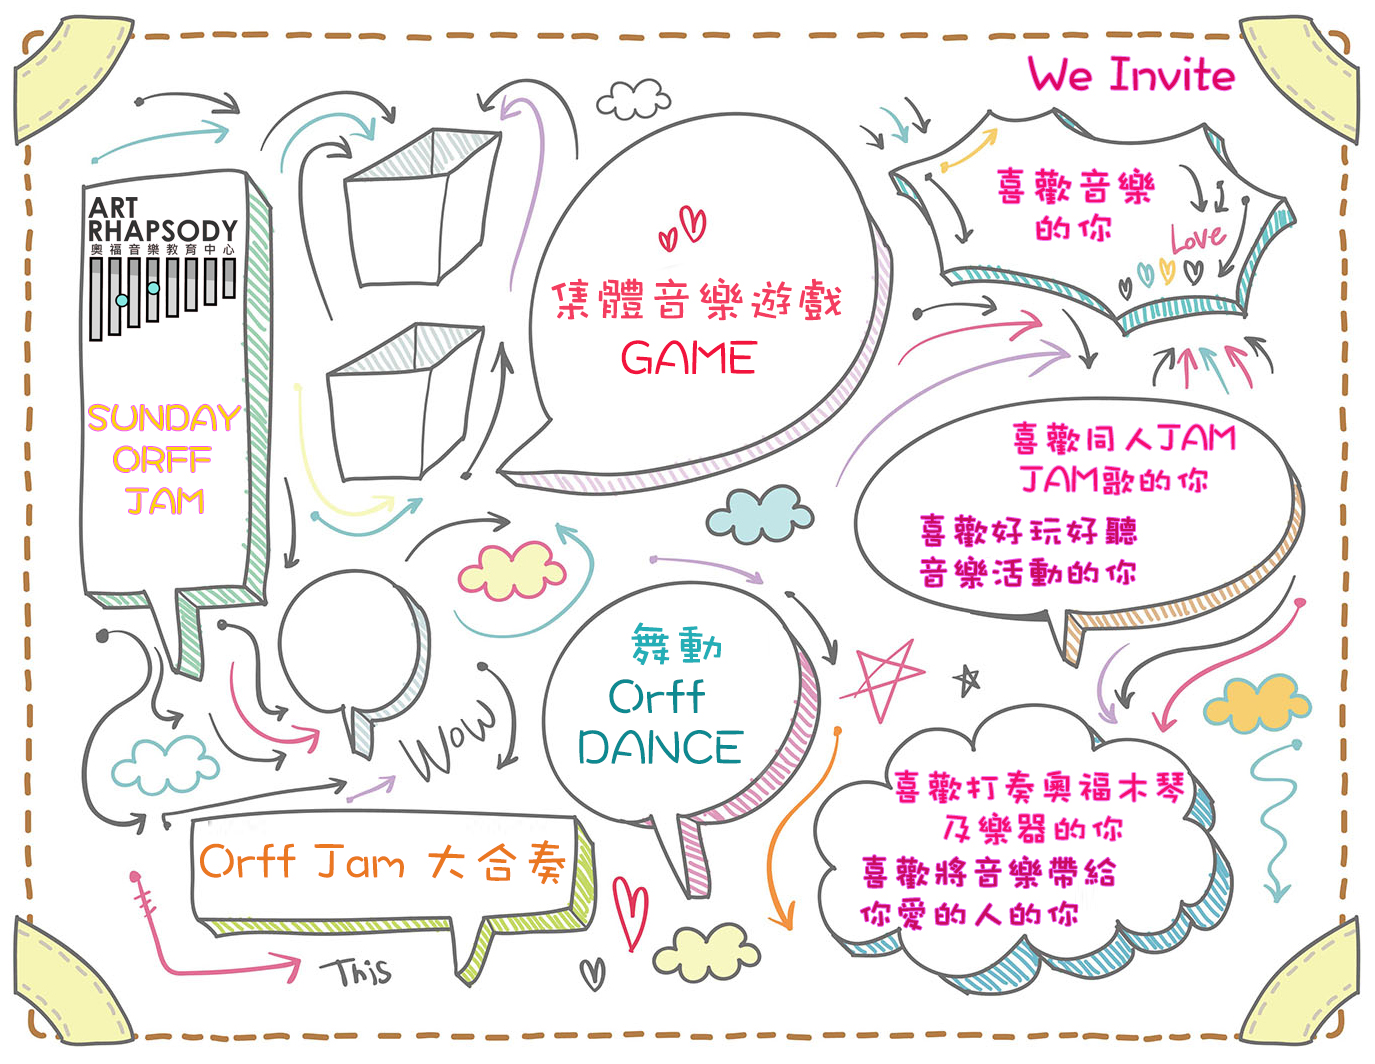 We Invite
ART
RHAPSODY
奧福音樂教育中心
SUNDAY
ORFF
JAM
集體音樂遊戲
GAME
喜歡音樂
的你
Love
喜歡同人JAM
JAM歌的你
喜歡好玩好聽
音樂活動的你
舞動
Orff
DANCE
Wow
喜歡打奏奧福木琴
及樂器的你
喜歡將音樂帶給
你愛的人的你
Orff Jam 大合奏
This